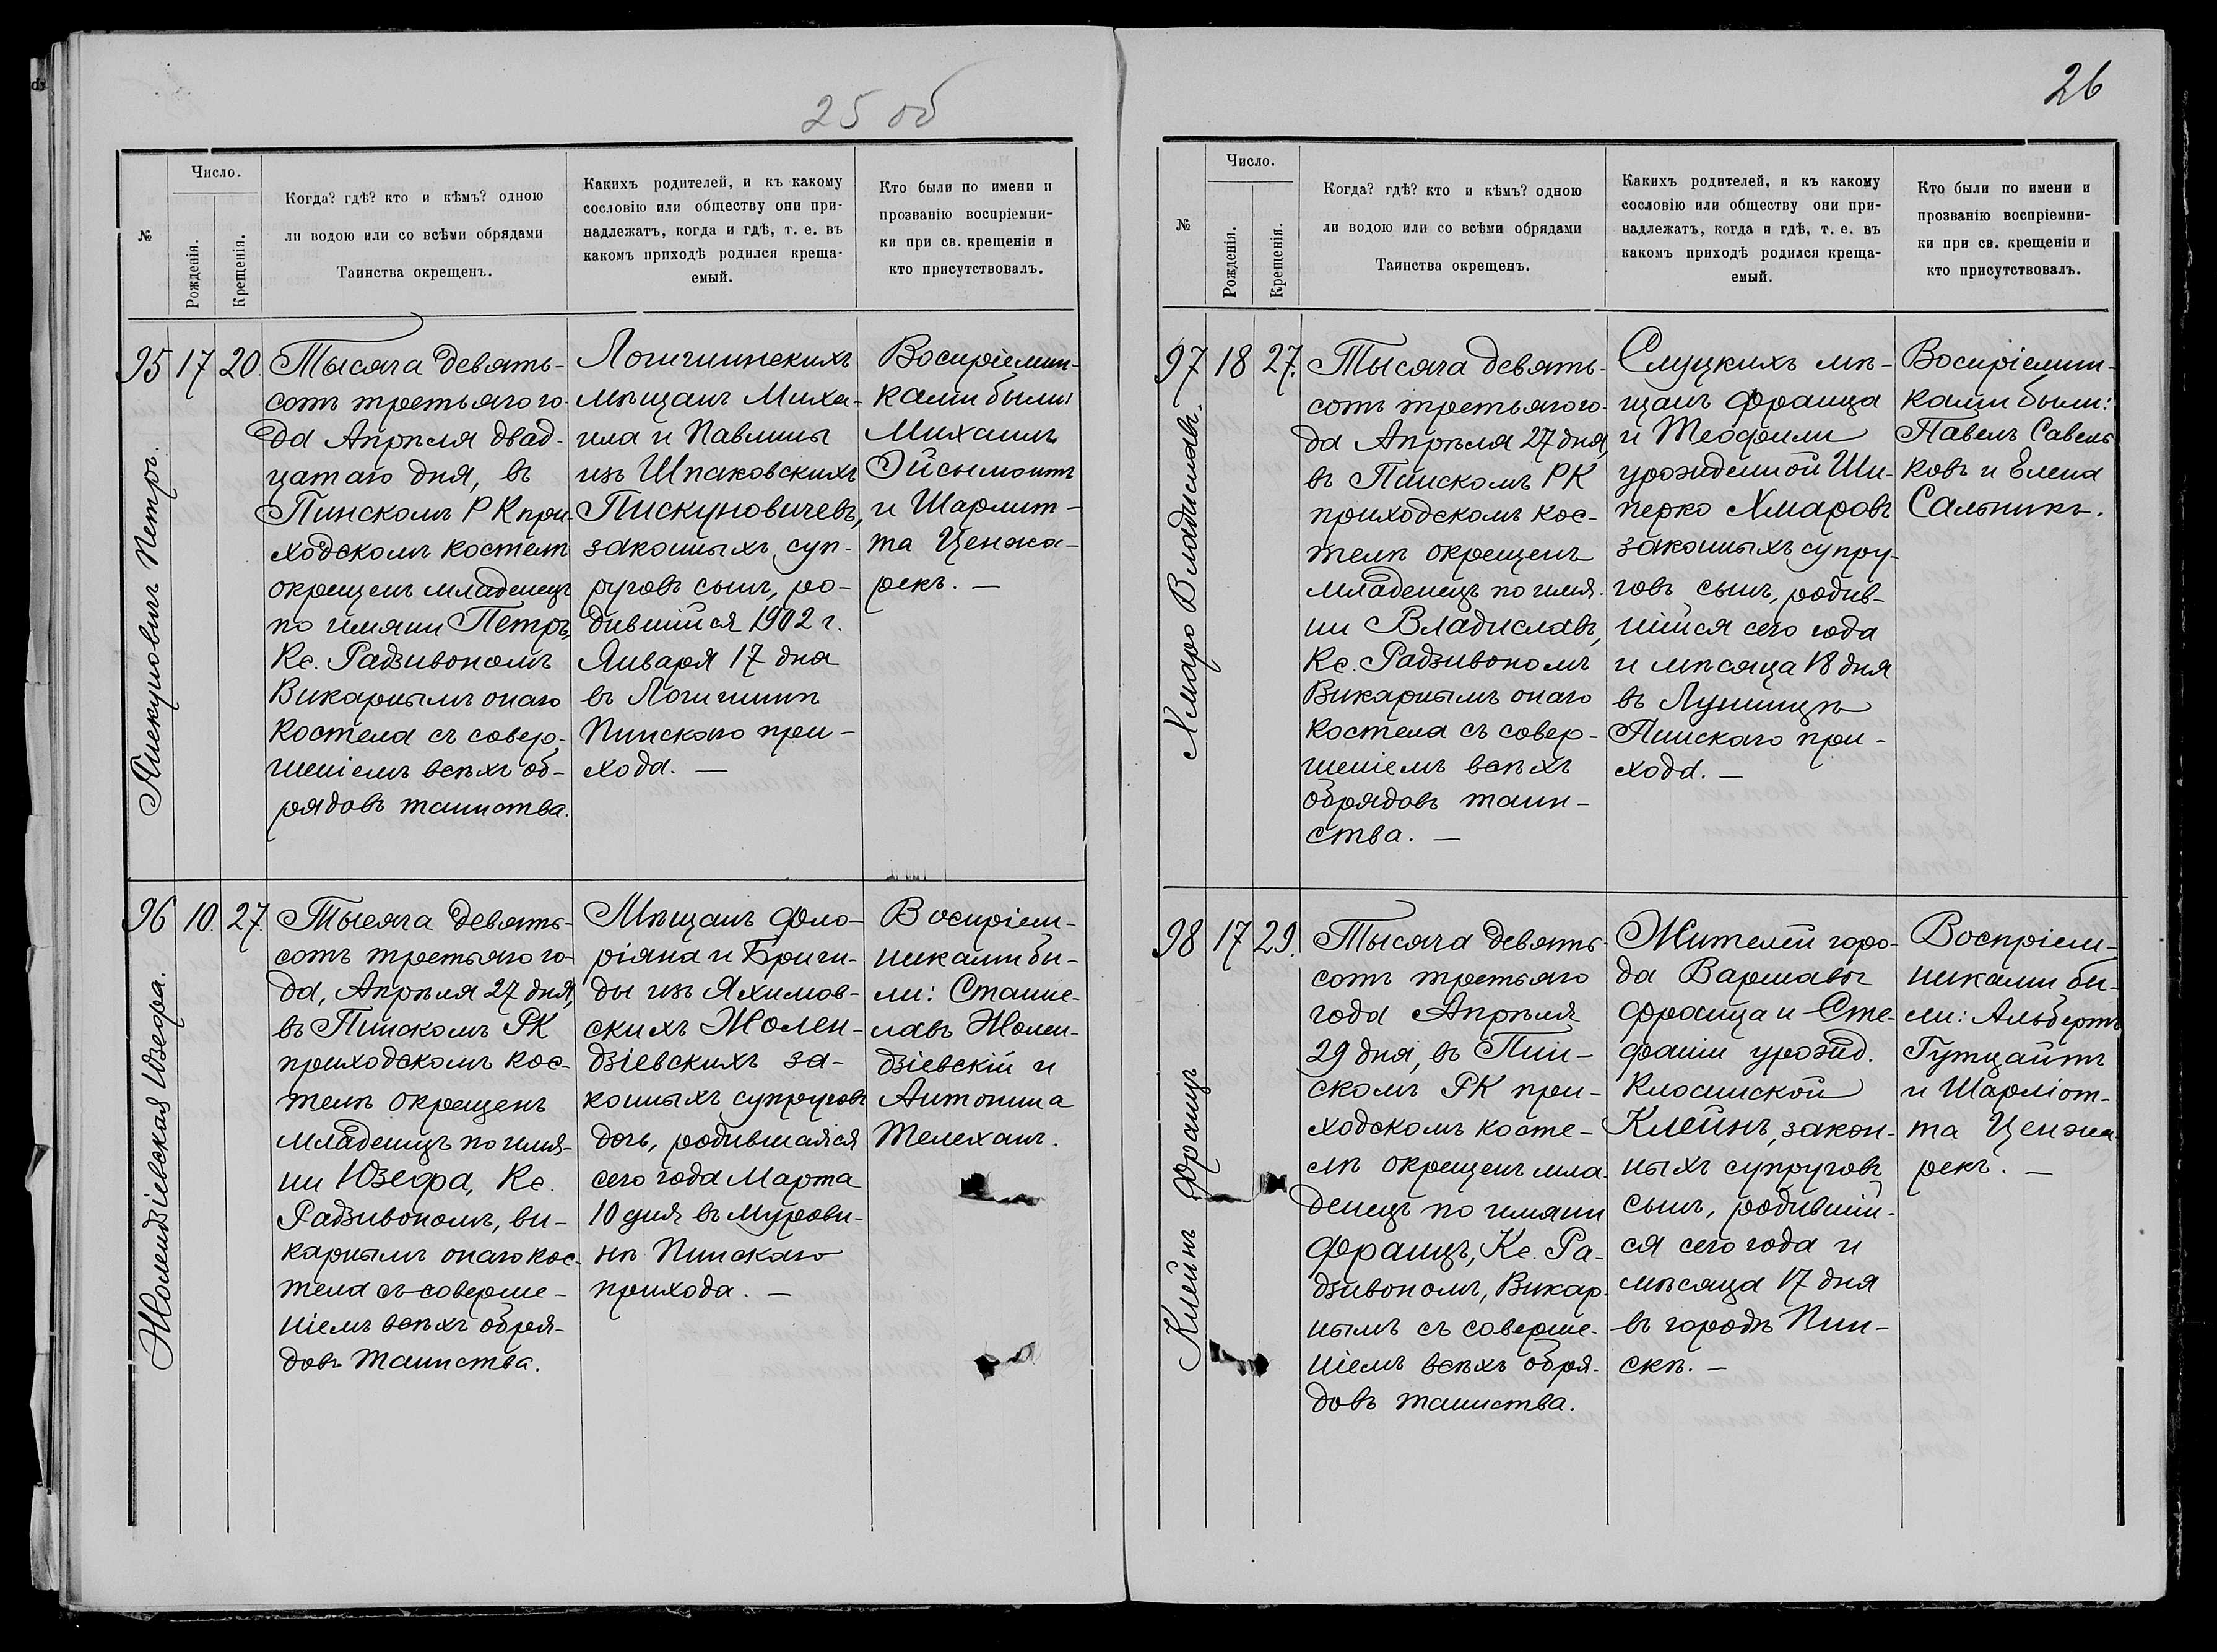 25 об
№
Число.
Рожденія.
Крещенія.
Когда? гдѣ? кто и кѣмъ? одною
ли водою или со всѣми обрядами
Таинства окрещенъ.
Какихъ родителей, и къ какому
сословію или обществу они при-
надлежатъ, когда и гдѣ, т. е. въ
какомъ приходѣ родился креща-
емый.
Кто были по имени и
прозванію воспріемни-
ки при св. крещеніи и
кто присутствовалъ.
95
Пискуновичъ Петръ.
17
20.
Тысяча девять-
сотъ третьяго го-
да Апрѣля двад-
цатаго дня, въ
Пинскомъ РК при-
ходскомъ костелѣ
окрещенъ младенецъ
по имяни Петръ,
Кс. Радзивономъ
Викарнымъ онаго
костела съ совер-
шеніемъ всѣхъ об-
рядовъ таинства.
Логишинскихъ
мѣщанъ Миха-
ила и Павлины
изъ Шпаковскихъ
Пискуновичевъ,
законныхъ суп-
руговъ сынъ, ро-
дившійся 1902 г.
Января 17 дня
въ Логишинѣ
Пинскаго при-
хода. —
Воспріемни-
ками были
Михаилъ
Эйсымонтъ
и Шарлит-
та Ценжа-
рекъ. —
96
Жолендзіевская Юзефа.
10.
27.
Тысяча девять-
сотъ третьяго го-
да, Апрѣля 27 дня,
въ Пинскомъ РК
приходскомъ кос-
телѣ окрещенъ
младенецъ по имя-
ни Юзефа, Кс.
Радзивономъ, ви-
карнымъ онаго кос-
тела съ соверше-
ніемъ всѣхъ обря-
довъ таинства.
Мѣщанъ Фло-
ріяна и Бриги-
ды изъ Яхимов-
скихъ Жолен-
дзіевскихъ за-
конныхъ супруговъ
дочь, родившаяся
сего года Марта
10 дня въ Мурови-
нѣ Пинскаго
прихода. —
Воспріем-
никами бы-
ли: Станис-
лавъ Жолен-
дзіевскій и
Антонина
Телеханъ.
26
№
Число.
Рожденія.
Крещенія.
Когда? гдѣ? кто и кѣмъ? одною
ли водою или со всѣми обрядами
Таинства окрещенъ.
Какихъ родителей, и къ какому
сословію или обществу они при-
надлежатъ, когда и гдѣ, т. е. въ
какомъ приходѣ родился креща-
емый.
Кто были по имени и
прозванію воспріемни-
ки при св. крещеніи и
кто присутствовалъ.
97
Хмаро Владиславъ.
18
27.
Тысяча девять-
сотъ третьяго го-
да Апрѣля 27 дня,
въ Пинскомъ РК
приходскомъ кос-
телѣ окрещенъ
младенецъ по имя-
ни Владиславъ,
Кс. Радзивономъ
Викарнымъ онаго
костела съ совер-
шеніемъ всѣхъ
обрядовъ таин-
ства. —
Слуцкихъ мѣ-
щанъ Франца
и Теофили
урожденной Ши-
перко Хмаровъ
законныхъ супру-
говъ сынъ, родив-
шійся сего года
и мѣсяца 18 дня
въ Лунинцѣ
Пинскаго при-
хода. —
Воспріемни-
ками были:
Павелъ Савель-
ковъ и Елена
Сальникъ.
98
Клейнъ Францъ
17
29.
Тысяча девять-
сотъ третьяго
года Апрѣля
29 дня, въ Пин-
скомъ РК при-
ходскомъ косте-
лѣ окрещенъ мла-
денецъ по имяни
Францъ, Кс. Ра-
дзивономъ, Викар-
нымъ съ соверше-
ніемъ всѣхъ обря-
довъ таинства.
Жителей горо-
да Варшавы
Франца и Сте-
фаніи урожд.
Клосинской
Клейнъ, закон-
ныхъ супруговъ
сынъ, родившій-
ся сего года и
мѣсяца 17 дня
въ городѣ Пин-
скѣ. —
Воспріем-
никами бы-
ли: Альбертъ
Гутцайтъ
и Шарліот-
та Ценжа-
рекъ. —